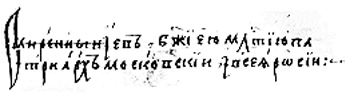 Смиренныи іевъ · бж҃їею мл҃тїю па
трїархъ московскїи і всея росїи :~